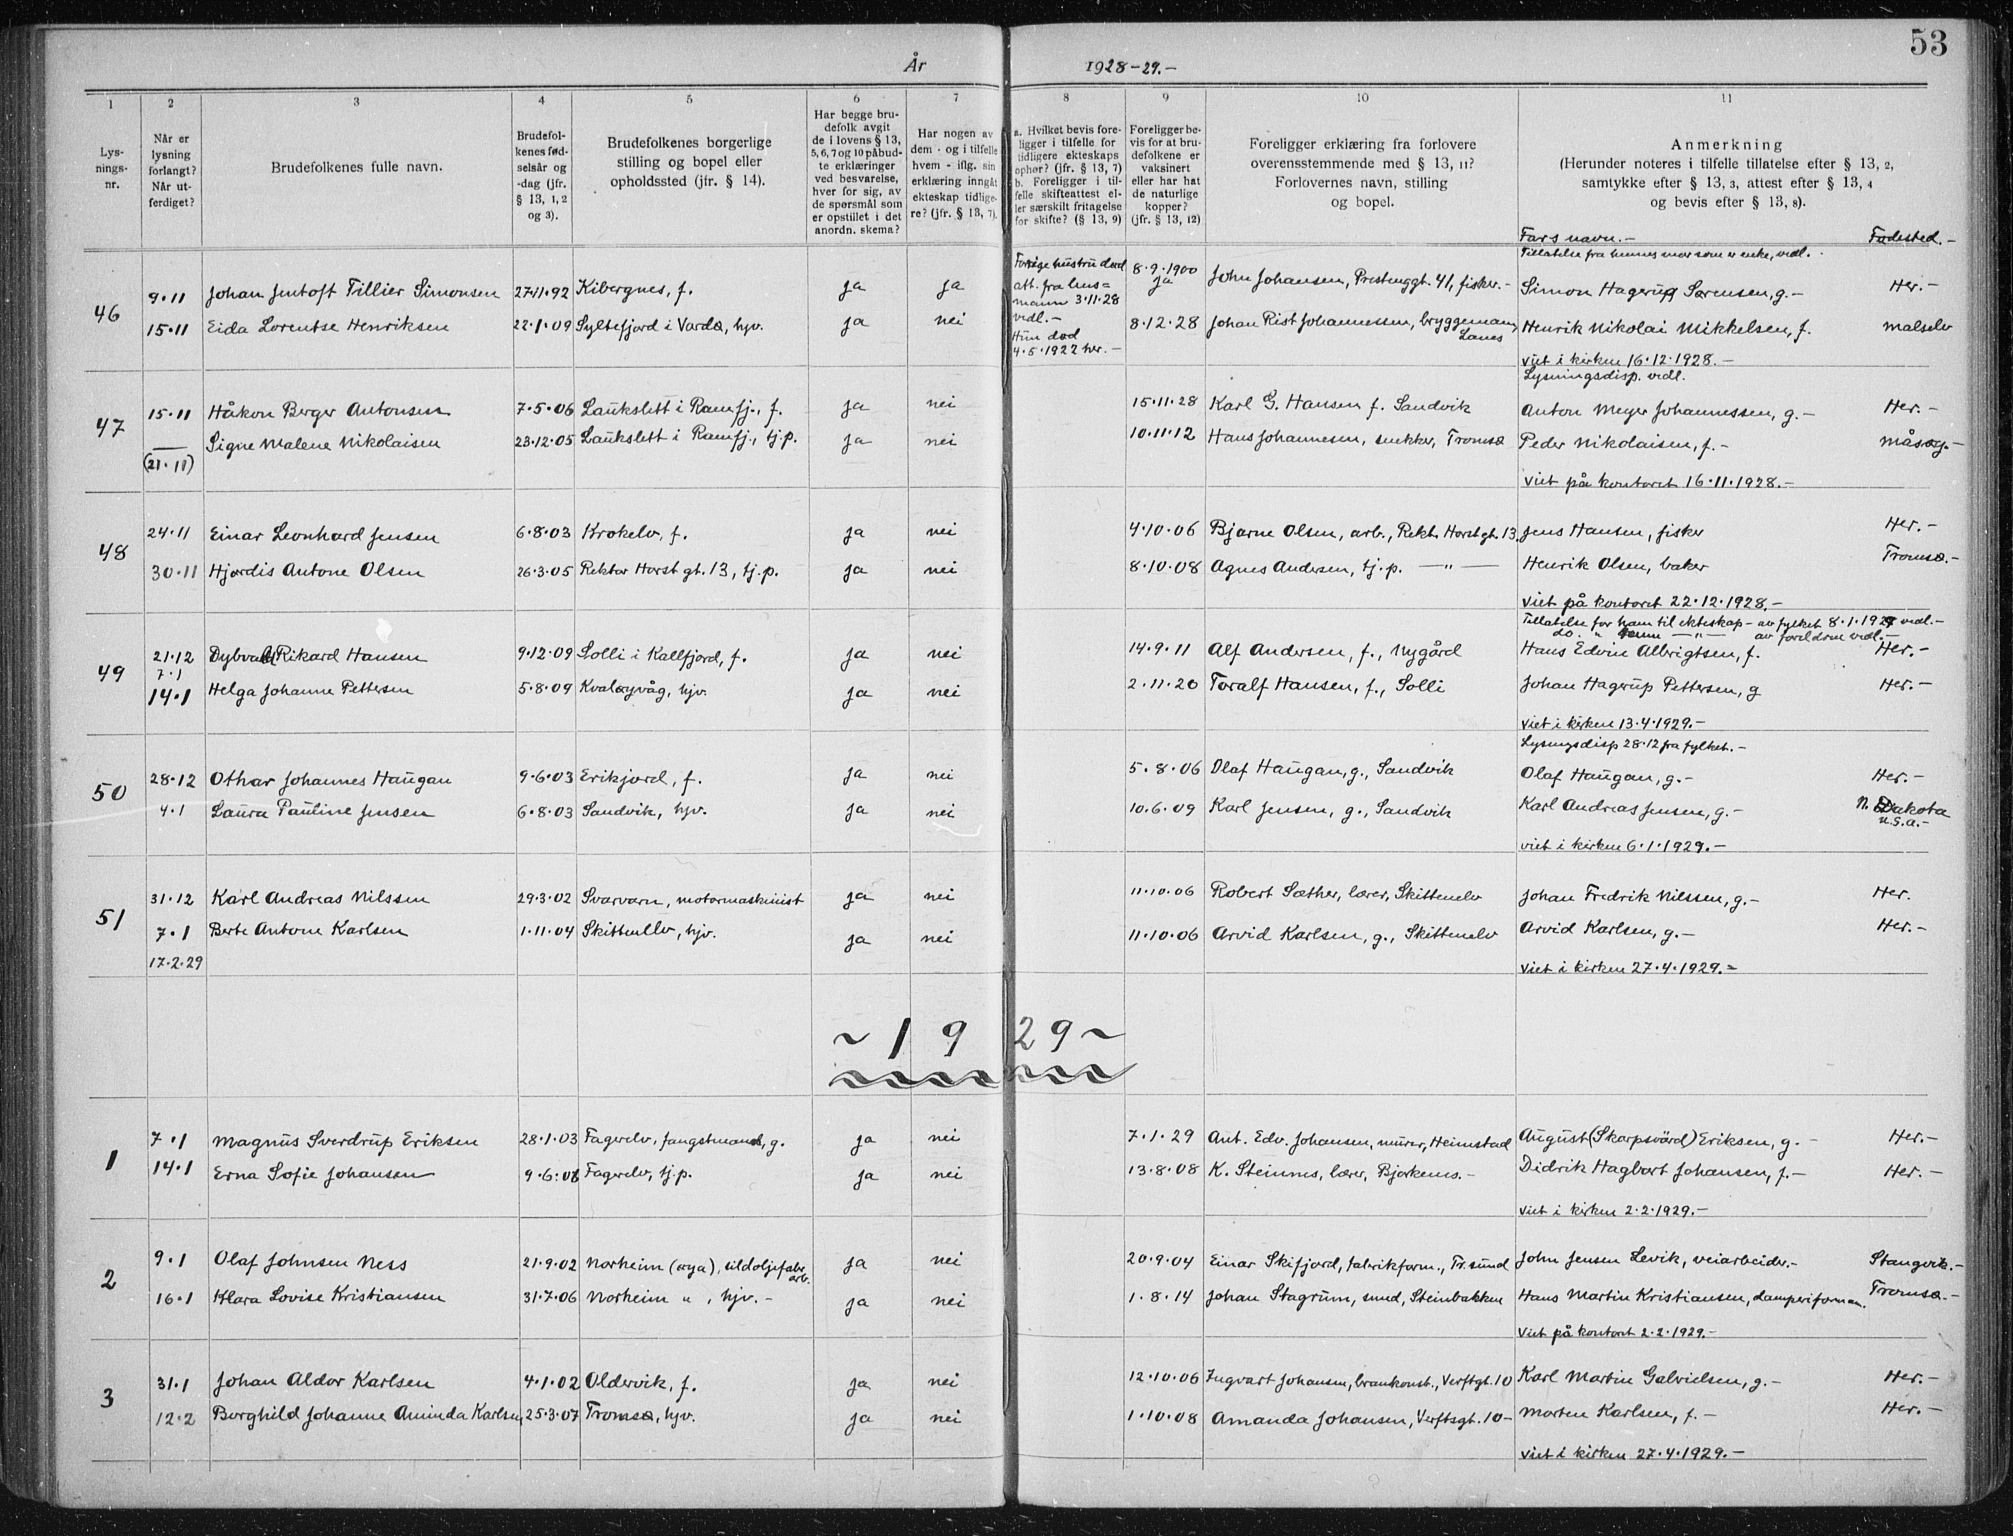 53
År 1928-29.-
1 2 3 4 5 6 7 8 9 10 11
Lys-
nings-
nr.
Når er
lysning
forlangt?
Når ut-
ferdiget?
Brudefolkenes fulle navn.
Brudefol-
kenes fød-
selsår og
-dag (jfr.
§ 13, 1, 2
og 3).
Brudefolkenes borgerlige
stilling og bopel eller
opholdssted (jfr. § 14).
Har begge bru-
defolk avgit
de i lovens § 13,
5, 6, 7 og 10 påbud-
te erklæringer
ved besvarelse,
hver for sig, av
de spørsmål som
er opstillet i det
anordn. skema?
Har nogen av
dem - og i tilfelle
hvem - iflg. sin
erklæring inngåt
ekteskap tidlige-
re? (jfr. § 13, 7).
a. Hvilket bevis fore-
ligger i tilfelle for
tidligere ekteskaps
ophør? (jfr. § 13, 7)
b. Foreligger i til-
felle skifteattest el-
ler særskilt fritagelse
for skifte? (§ 13, 9)
Foreligger be-
vis for at bru-
defolkene er
vaksinert
eller har hat
de naturlige
kopper?
(jfr. § 13, 12)
Foreligger erklæring fra forlovere
overensstemmende med § 13, 11?
Forlovernes navn, stilling
og bopel.
Anmerkning
(Herunder noteres i tilfelle tillatelse efter § 13, 2,
samtykke efter § 13, 3, attest efter § 13, 4
og bevis efter § 13, 8).
Fars navn.- Fødested.-
Tillatelse fra hennes mor som er enke, vedl.
46 9.11 Johan Jentoft Tillier Simonsen 27.11.92 Kibergnes, f. ja ja 8.9.1900 ja John Johansen, Prestenggt. 41, fisker.- Simon Hagerup Sørensen, g.- Her.-
Forrige hustru død
att. fra lens=
mann 3.11.28
vedl.-
Hun død
4.5.1922 her.-
15.11 Eida Lorentse Henriksen 22.1.09 Syltefjord i Vardø, hjv. ja nei 8.12.28 Johan Rist Johannessen, bryggemann, Henrik Nikolai Mikkelsen, f. Målselv
Lanes
viet i kirken 16.12.1928.-
Lysningsdisp. vedl.
47 15.11 Håkon Berger Antonsen 7.5.06 Laukslett i Ramfj., f. ja nei 15.11.28 Karl G. Hansen f. Sandvik Anton Meyer Johannessen, g.- Her.-
(21.11) Signe Malene Nikolaisen 23.12.05 Laukslett i Ramfj., tj.p. ja nei 10.11.12 Hans Johannesen, snekker, Tromsø Peder Nikolaisen, f.- Måsøy.-
viet på kontoret 16.11.1928.-
48 24.11 Einar Leonhard Jensen 6.8.03 Krokelv, f. ja nei 4.10.06 Bjarne Olsen, arb., Rekt. Horst gt. 13. Jens Hansen, fisker Her.-
30.11 Hjørdis Antone Olsen 26.3.05 Rektor Horst gt. 13, tj.p. ja nei 8.10.08 Agnes Andersen, tj.p. — " — Henrik Olsen, baker Tromsø.-
viet på kontoret 22.12.1928.-
Tillatelse for ham til ekteskap - av fylket 8.1.1929 vedl.-
do. " henne — " — av foreldrene vedl.-
49 21.12 Dybvald Rikard Hansen 9.12.09 Solli i Kallfjord, f. ja nei 14.9.11 Alf Andersen, f., Nygård Hans Edvin Albrigtsen, f. Her.-
7.1
14.1 Helga Johanne Pettersen 5.8.09 Kvaløyvåg, hjv. ja nei 2.11.20 Toralf Hansen, f., Solli Johan Hagerup Pettersen, g Her.-
viet i kirken 13.4.1929.-
Lysningsdisp 28.12 fra fylket.-
50 28.12 Othar Johannes Haugan 9.6.03 Erikjord, f. ja nei 5.8.06 Olaf Haugan, g., Sandvik Olaf Haugan, g.- Her.-
4.1 Laura Pauline Jensen 6.8.03 Sandvik, hjv. ja nei 10.6.09 Karl Jensen, g., Sandvik Karl Andreas Jensen, g.- N. Dakota
U.S.A.-
viet i kirken 6.1.1929.-
51 31.12 Karl Andreas Nilssen 29.3.02 Svarvarn, motormaskinist ja nei 11.10.06 Robert Sæther, lærer, Skittenelv Johan Fredrik Nilssen, g.- Her.
7.1 Berte Antone Karlsen 1.11.04 Skittenelv, hjv. ja nei 11.10.06 Arvid Karlsen, g., Skittenelv Arvid Karlsen, g.- Her.-
17.2.29 viet i kirken 27.4.1929.=
~ 1 9 2 9 ~
1 7.1 Magnus Sverdrup Eriksen 28.1.03 Fagerelv, fangstmand, g. ja nei 7.1.29 Ant. Edv. Johansen, murer, Heimstad August (Skarpsvärd) Eriksen, g.- Her.-
14.1 Erna Sofie Johansen 9.6.08 Fagerelv, tj.p. ja nei 13.8.08 K. Steinnes, lærer, Bjørkenes.- Didrik Hagbart Johansen, f.- Her.-
viet i kirken 2.2.1929.-
2 9.1 Olaf Johnsen Ness 21.9.02 Norheim (øya), sildoljefabr. arb. ja nei 20.9.04 Einar Skifjord, fabrikform., Tr.sund John Jensen Levik, veiarbeider.- Stangvik.-
16.1 Klara Lovise Kristiansen 31.7.06 Norheim " , hjv.- ja nei 1.8.14 Johan Stagrum, smed, Steinbakken Hans Martin Kristiansen, damperiformann. Tromsø.-
viet på kontoret 2.2.1929.-
3 31.1 Johan Aldor Karlsen 4.1.02 Oldervik, f. ja nei 12.10.06 Ingvart Johansen, brankonst., Verftgt. 10 Karl Martin Gabrielsen, g.- Her.-
12.2 Borghild Johanne Aminda Karlsen, 25.3.07 Tromsø, hjv. ja nei 1.10.08 Amanda Johansen, Verftsgt. 10- Morten Karlsen, f.- Her.-
viet i kirken 27.4.1929.-